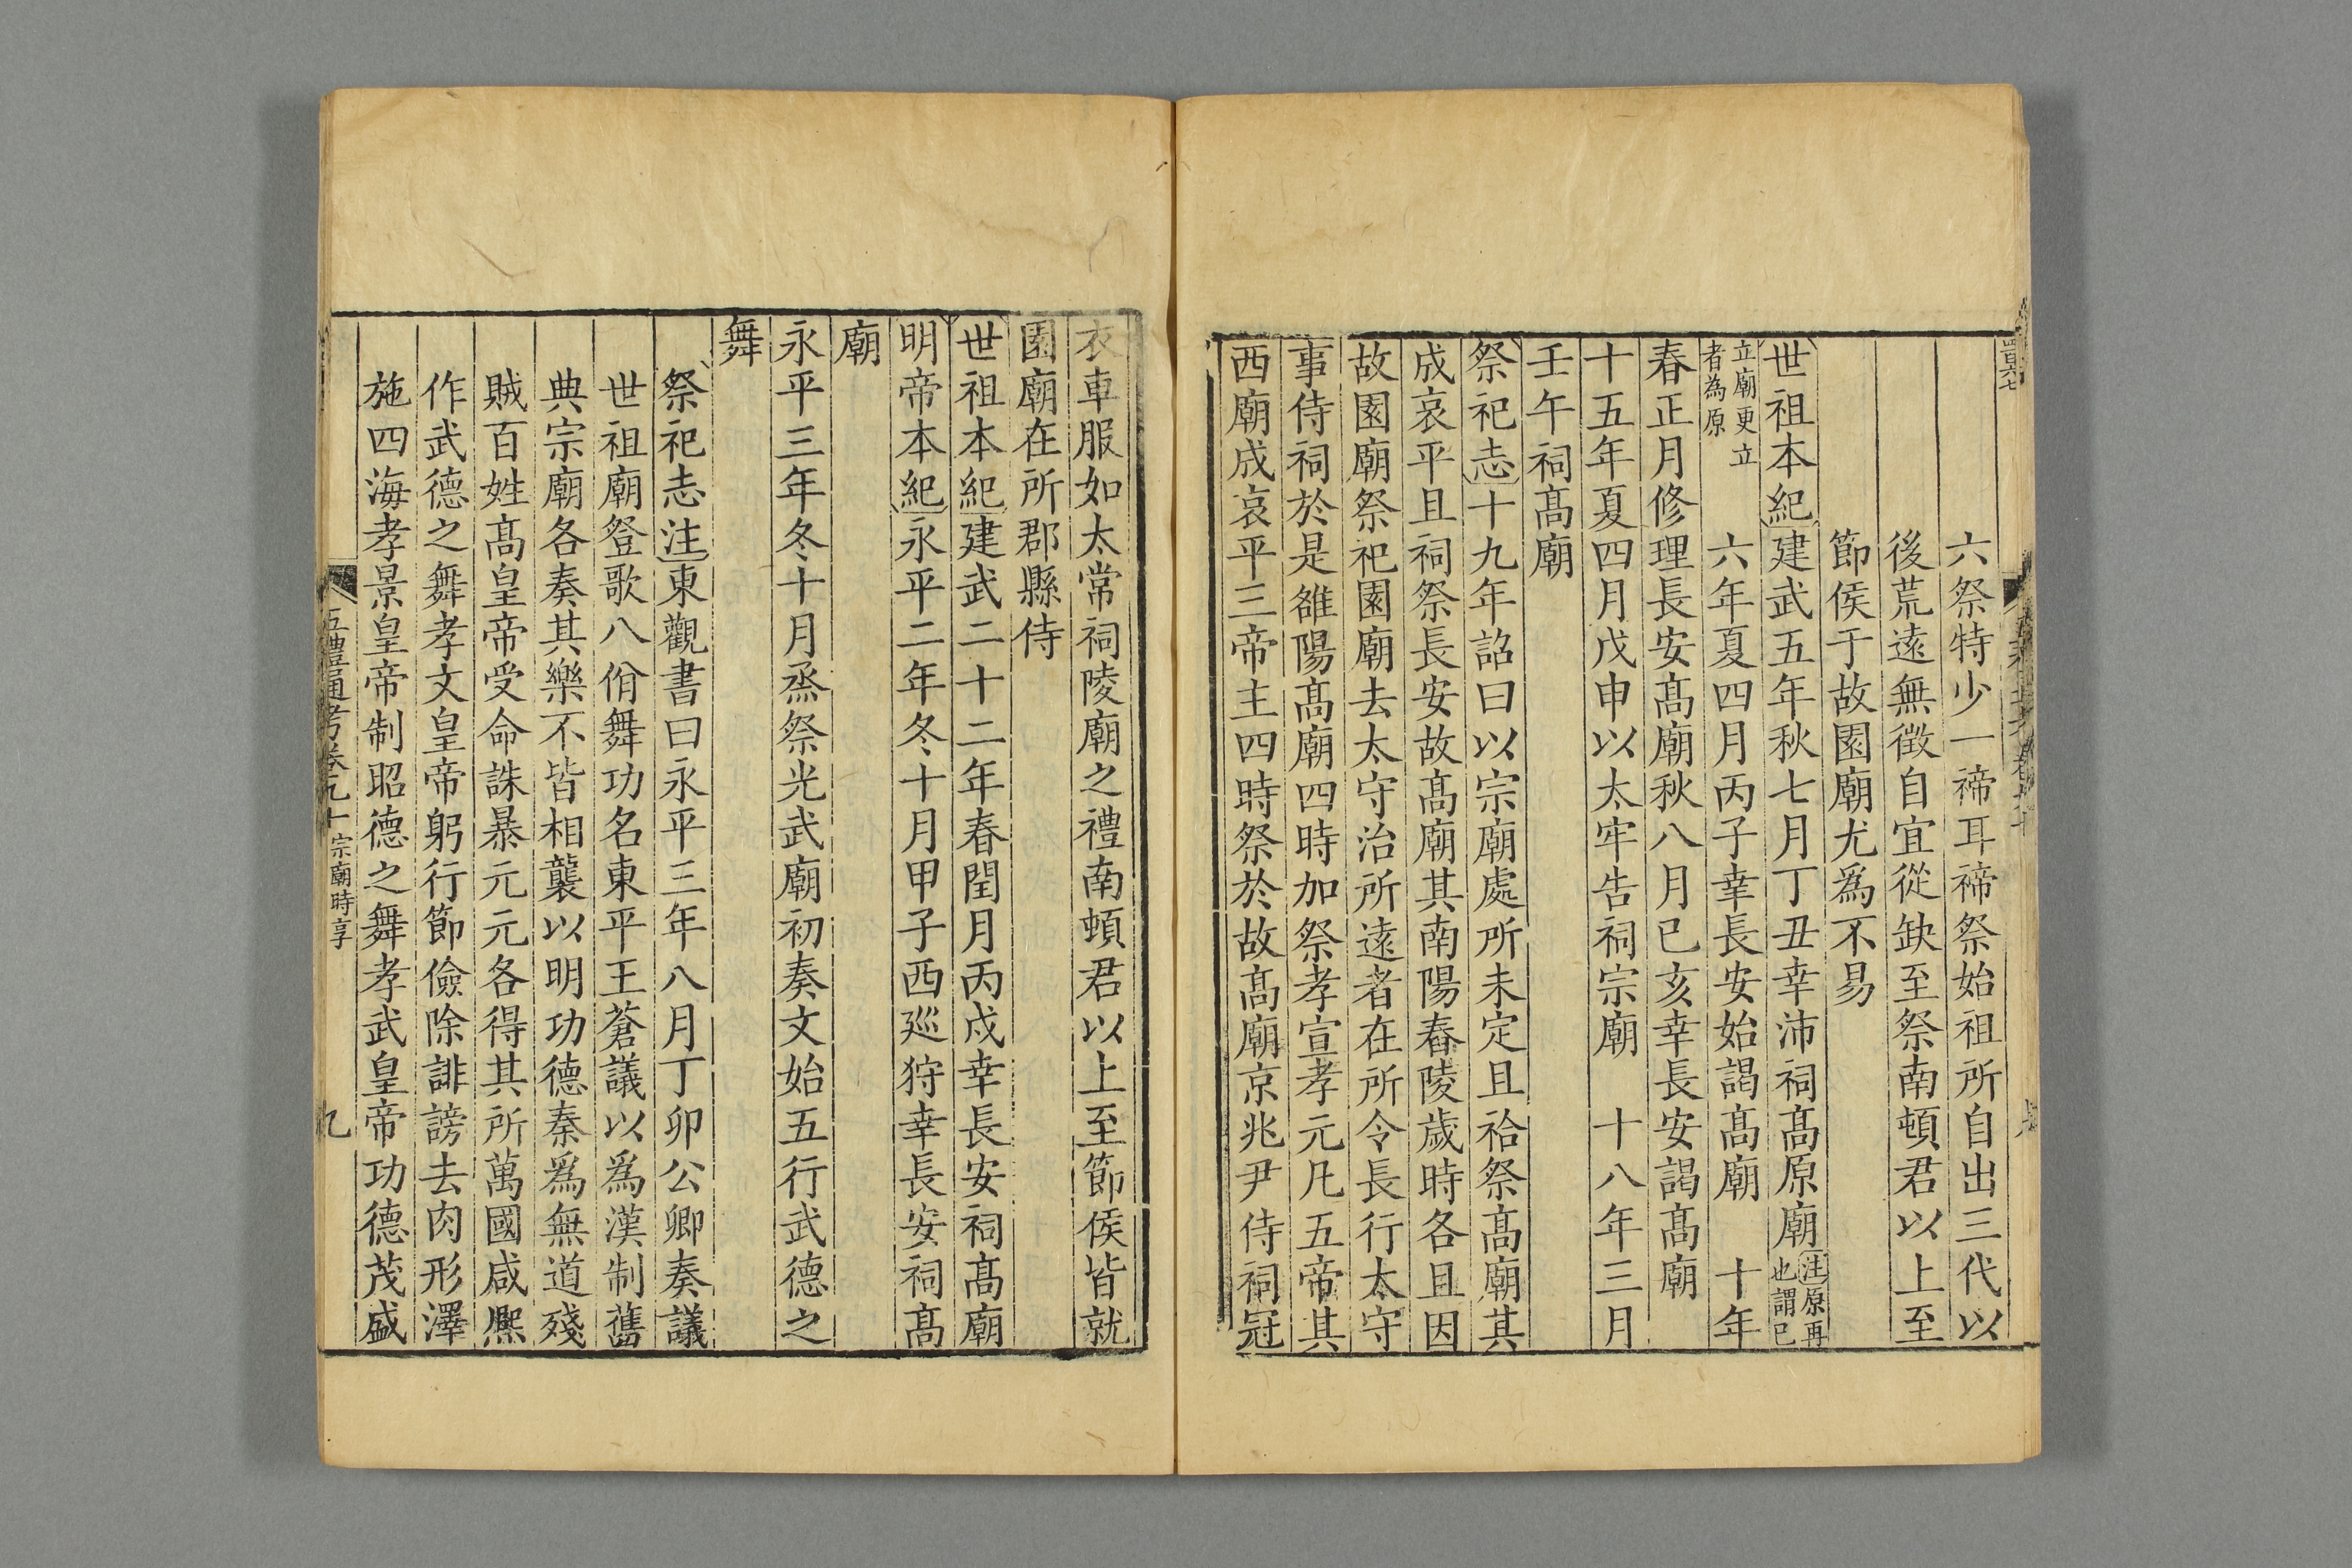 六祭特少一禘耳禘祭始祖所自出三代以
後荒遠無徵自宜從缺至祭南頓君以上至
節侯于故園廟尤爲不易
世祖本紀建武五年秋七月丁丑幸沛祠髙原廟注原再也謂已
立廟更立者為原 六年夏四月丙子幸長安始謁髙廟 十年
春正月修理長安髙廟秋八月己亥幸長安謁髙廟
十五年夏四月戊申以太牢告祠宗廟 十八年三月
壬午祠髙廟
祭祀志十九年詔曰以宗廟處所未定且祫祭髙廟其
成哀平且祠祭長安故髙廟其南陽舂陵歲時各且因
故園廟祭祀園廟去太守治所遠者在所令長行太守
事侍祠於是雒陽髙廟四時加祭孝宣孝元凡五帝其
西廟成哀平三帝主四時祭於故髙廟京兆尹侍祠冠
衣車服如太常祠陵廟之禮南頓君以上至節侯皆就
園廟在所郡縣侍
世祖本紀建武二十二年春閏月丙戌幸長安祠髙廟
明帝本紀永平二年冬十月甲子西廵狩幸長安祠髙
廟
永平三年冬十月烝祭光武廟初奏文始五行武德之
舞
祭祀志注東觀書曰永平三年八月丁卯公卿奏議
世祖廟登歌八佾舞功名東平王蒼議以爲漢制舊
典宗廟各奏其樂不皆相襲以明功德秦爲無道殘
賊百姓髙皇帝受命誅暴元元各得其所萬國咸熈
作武德之舞孝文皇帝躬行節儉除誹謗去肉形澤
施四海孝景皇帝制昭德之舞孝武皇帝功德茂盛
五禮通考卷九十 宗廟時享 九